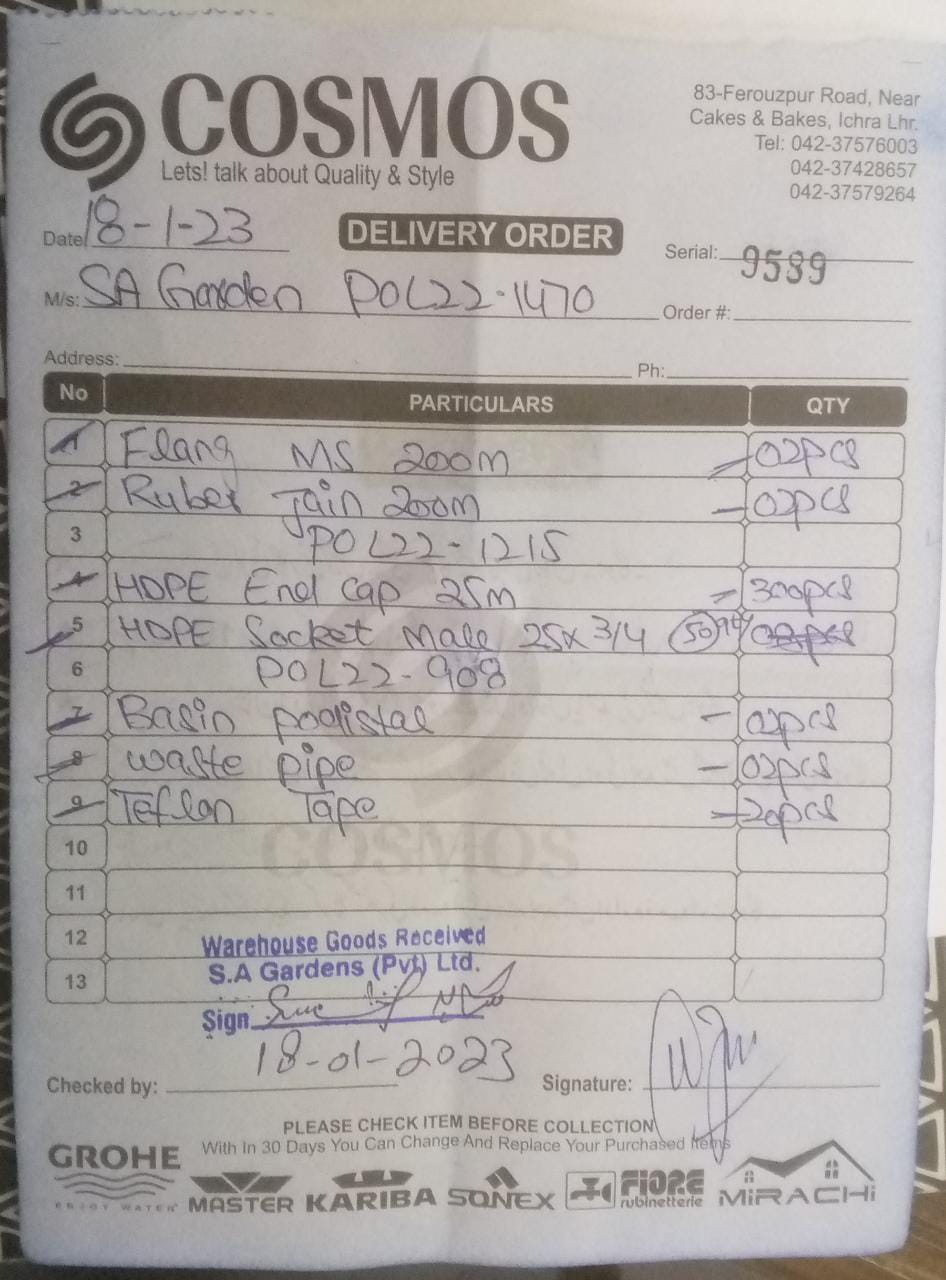 COSMOS
Lets! talk about Quality & Style
83-Ferouzpur Road, Near
Cakes & Bakes, Ichra Lhr.
Tel: 042-37576003
042-37428657
042-37579264
Date 18-1-23
DELIVERY ORDER
Serial: 9589
M/s: SA Garden POL22-1470
Order #:
Address:
Ph:
No PARTICULARS QTY
1 Flang MS 200m - 02pcs
2 Ruber Jain 200m - 02pcs
3 POL22-1215
4 HDPE End Cap 25m = 300pcs
5 HDPE Socket Male 25x3/4 50
6 POL22-908
7 Basin padistal - 02pcs
8 waste pipe - 02pcs
9 Teflon Tape - 20pcs
10
11
12
13
Warehouse Goods Received
S.A Gardens (Pvt) Ltd.
Sign
18-01-2023
Checked by:
Signature:
PLEASE CHECK ITEM BEFORE COLLECTION
With In 30 Days You Can Change And Replace Your Purchased Items
GROHE
ENJOY WATER
MASTER KARIBA SONEX FIORE rubinetterie MiRACHi
COSMOS